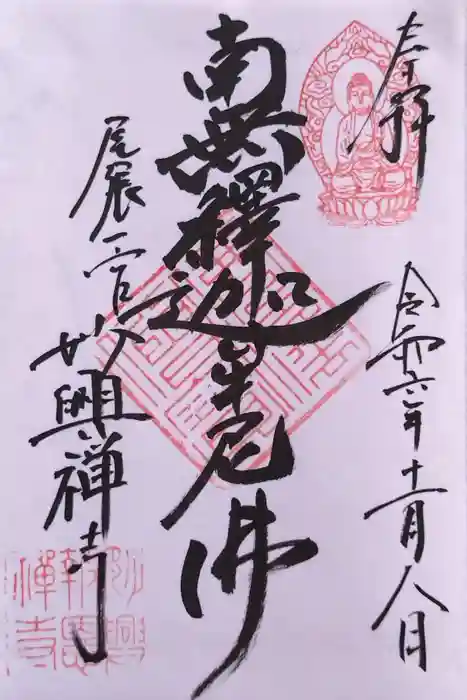 奉拝
令和六年十一月八日
南無釋迦牟尼佛
尾張一宮妙興禅寺
妙興
報恩
禅寺